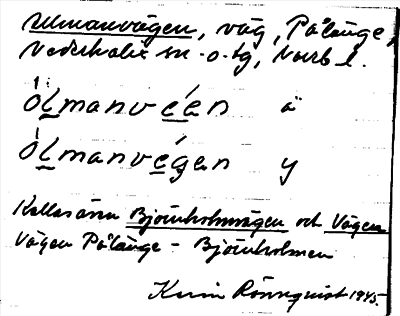 Ulmanvägen, väg, Pålänge,
Nederkalix sn. o. tg, Norrb l.
ólmanvéen ä
ólmanvégen y
Kallas även Björnholmvägen och Vägen
Vägen Pålänge - Björnholmen
Karin Rönnquist 1945.